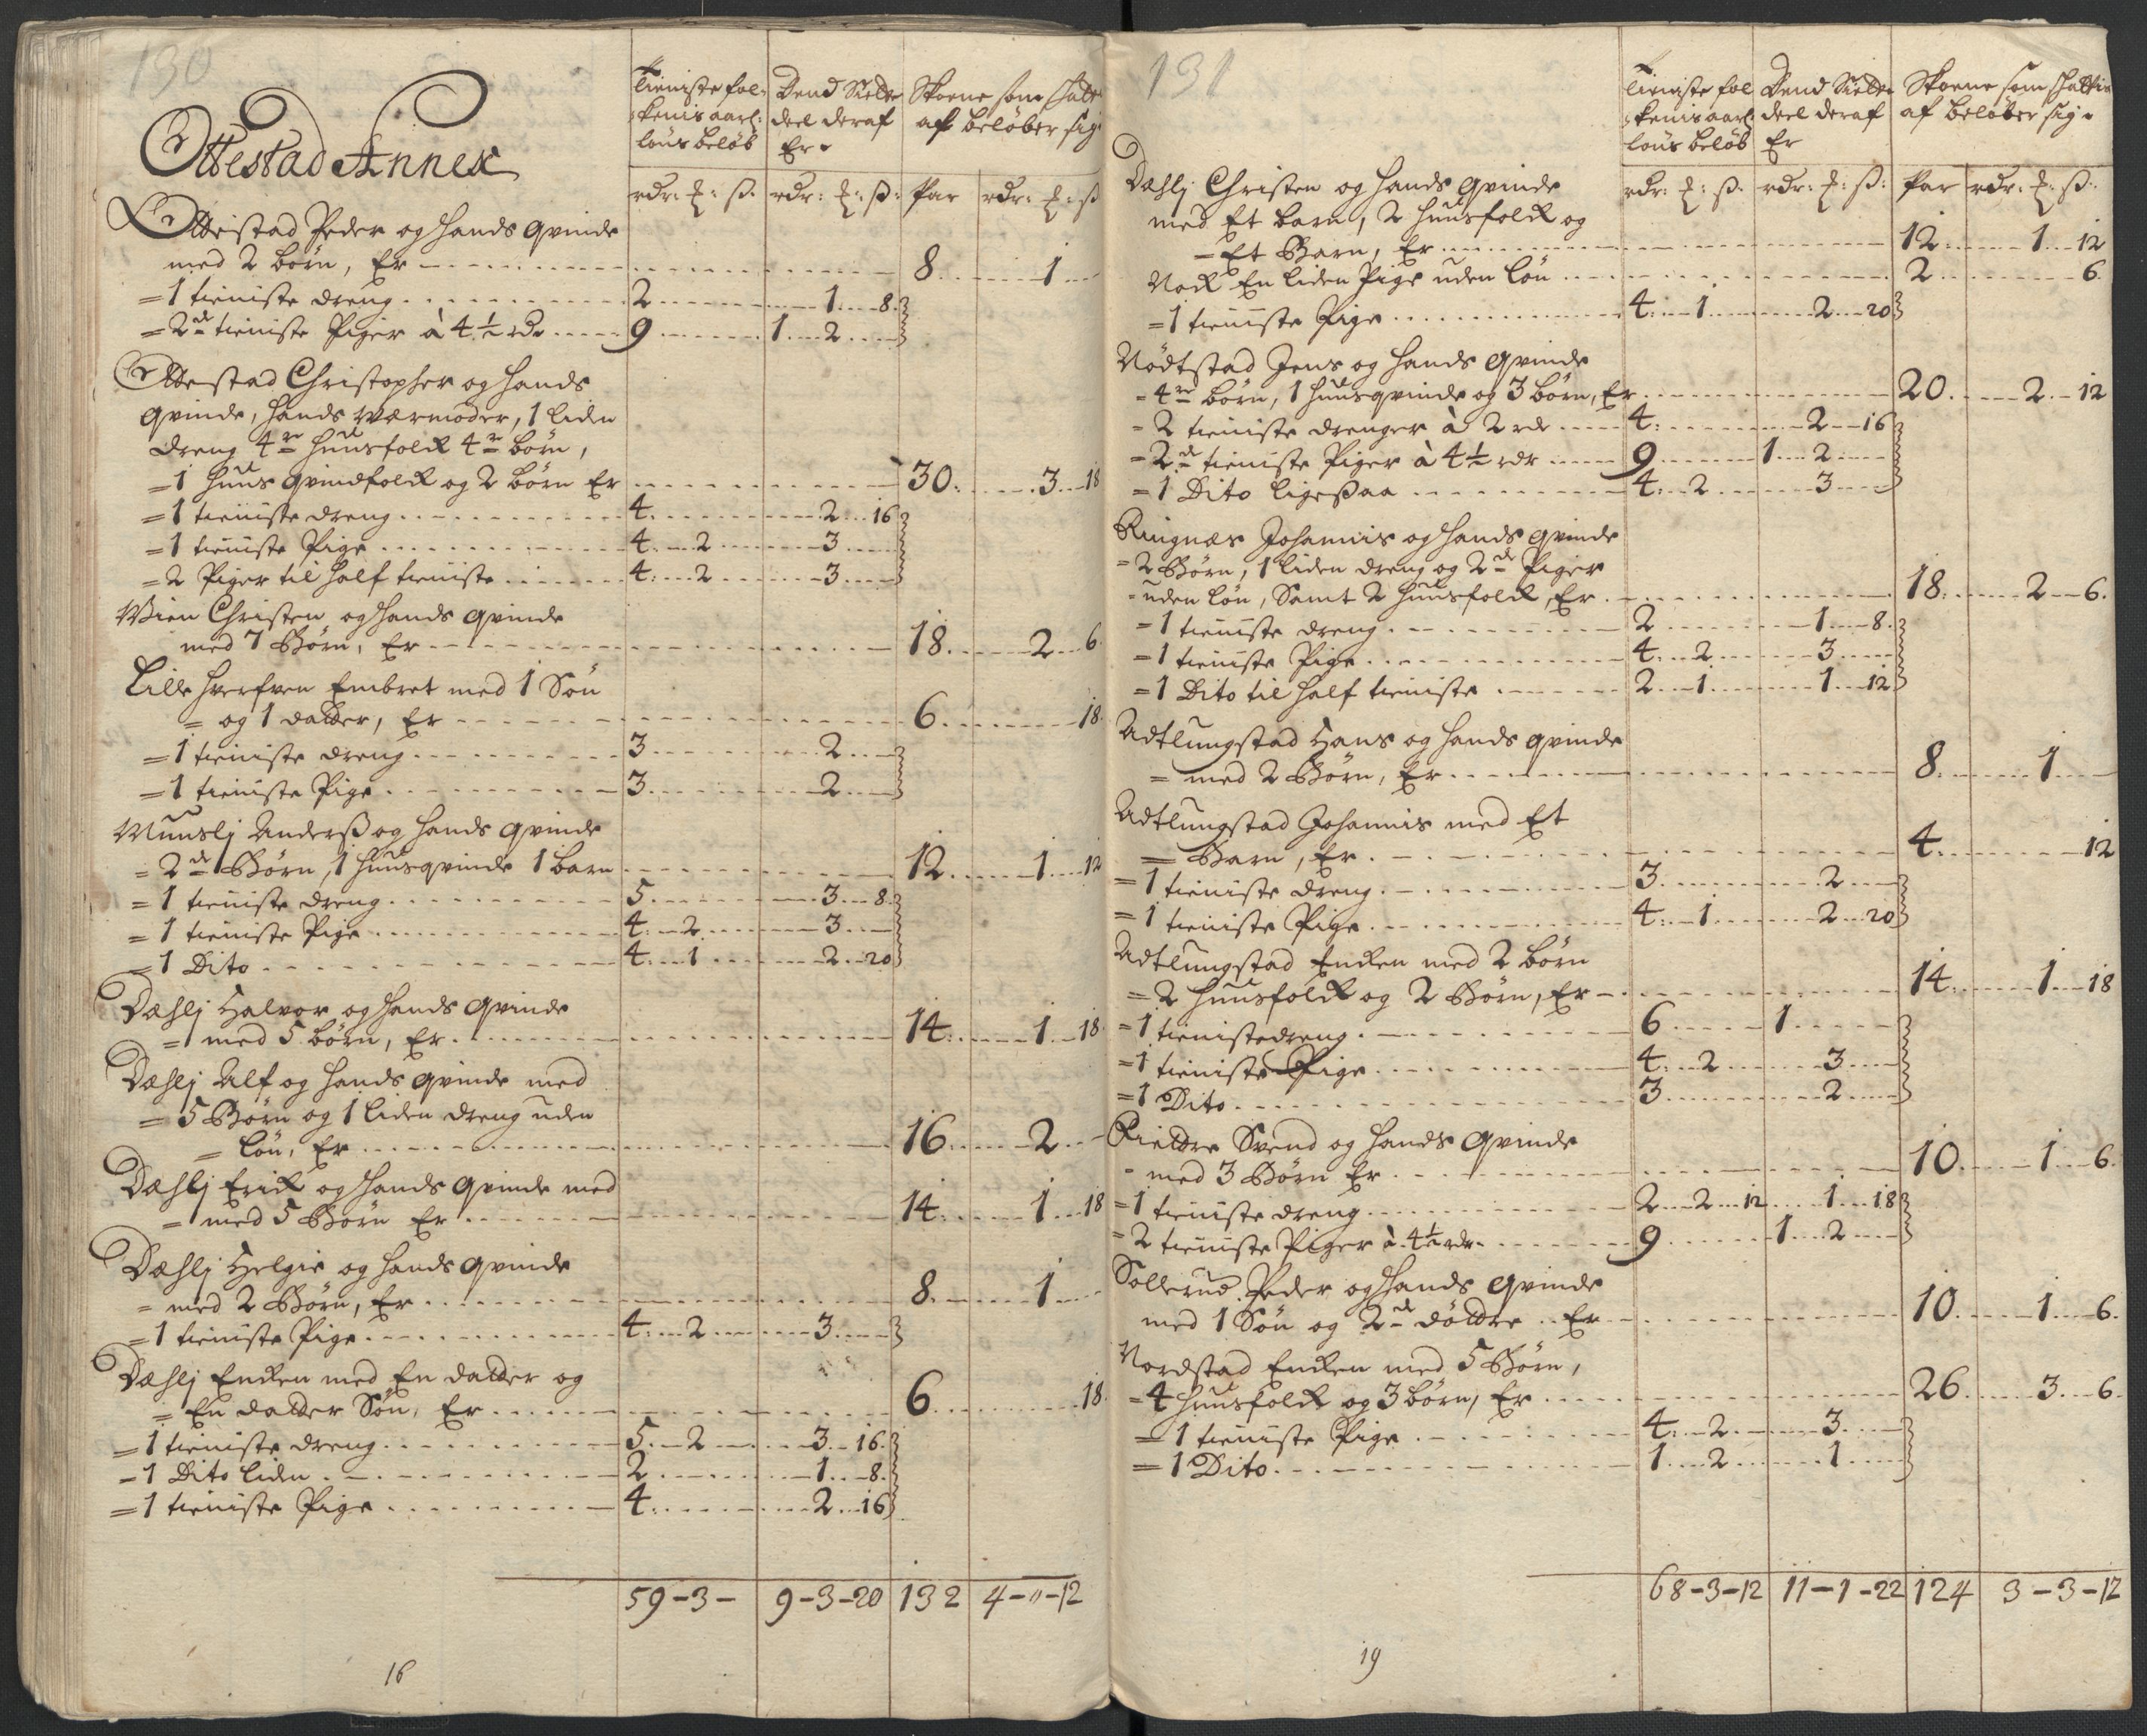 130
Tieniste fol-
kenis aarl:
löns beløb
Dend Siette
deel deraf
Er
Skoene som skatt
af beløber sig
Ottestad Annex
rdr: ₰: ß: rdr: ₰: ß: Par rdr: ₰: ß
Ottestad Peder og hands qvinde
med 2 börn, Er 8 1
= 1 tieniste dreng 2 1 8
= 2de tieniste Piger à 4½ rdr 9 1 2
Ottestad Christopher og hands
qvinde, hands Værmoder, 1 liden
dreng 4re huusfolck 4re börn,
= 1 huus qvindfolck og 2 börn Er 30 3 18
= 1 tieniste dreng 4 2 16
= 1 tieniste Pige 4 2 3
= 2 Piger til half tieniste 4 2 3
Wien Christen og hands qvinde
med 7 Börn, Er 18 2 6
Lille Hverfven Embret med 1 Sön
= og 1 datter, Er 6 18
= 1 tieniste dreng 3 2
= 1 tieniste Pige 3 2
Muuslj Anderß og hands qvinde
= 2de Börn, 1 huusqvinde 1 barn 12 1 12
= 1 tieniste dreng 5 3 8
= 1 tieniste Pige 4 2 3
= 1 Dito 4 1 2 20
Dæhlj Halvor og hands qvinde
= med 5 börn, Er 14 1 18
Dæhlj Alf og hands qvinde med
= 5 Börn og 1 liden dreng uden
= lön, Er 16 2
Dæhlj Erick og hands qvinde med
= med 5 Börn Er 14 1 18
Dæhlj Helgie og hands qvinde
= med 2 Börn, Er 8 1
= 1 tieniste Pige 4 2 3
Dæhlj Encken med En datter og
= En datter Sön, Er 6 18
= 1 tieniste dreng 5 2 3 16
= 1 Dito liden 2 1 8
= 1 tieniste Pige 4 2 16
59-3- 9-3-20 132 4-"-12
16
131
Tieniste fol
kenis aarl
löns beløb
Dend Siette
deel deraf
Er
Skoene som skattis
af beløber sig
rdr: ₰: ß: rdr: ₰: ß: Par rdr: ₰: ß:
Dæhlj Christen og hands qvinde
med Et barn, 2 huusfolck og
= Et Barn, Er 12 1 12
Nock En liden Pige uden lön 2 6
= 1 tieniste Pige 4 1 2 20
Nödtstad Jens og hands qvinde
= 4re börn, 1 huusqvinde og 3 börn, Er 20 2 12
= 2 tieniste drenger à 2 rdr 4 2 16
= 2de tieniste Piger à 4½ rdr 9 1 2
= 1 Dito ligeßaa 4 2 3
Ringnæs Johannis og hands qvinde
= 2 Börn, 1 liden dreng og 2de Piger
= uden lön, Samt 2 huusfolck, Er 18 2 6
= 1 tieniste dreng 2 1 8
= 1 tieniste Pige 4 2 3
= 1 Dito til half tieniste 2 1 1 12
Adtlungstad Hans og hands qvinde
= med 2 Börn, Er 8 1
Adtlungstad Johannis med Et
= Barn, Er 4 12
= 1 tieniste dreng 3 2
= 1 tieniste Pige 4 1 2 20
Adtlungstad Encken med 2 börn
= 2 huusfolck og 2 Börn, Er 14 1 18
= 1 tienistedreng 6 1
= 1 tieniste Pige 4 2 3
= 1 Dito 3 2
Riettre Svend og hands qvinde
= med 3 Börn Er 10 1 6
= 1 tieniste dreng 2 2 12 1 18
= 2 tieniste Piger à 4½ rdr 9 1 2
Sollerud Peder og hands qvinde
med 1 Sön og 2de döttre Er 10 1 6
Nordstad Encken med 5 Börn,
= 4 huusfolck og 3 börn, Er 26 3 6
= 1 tieniste Pige 4 2 3
= 1 Dito 1 2 1
68-3-12 11-1-22 124 3-3-12
19